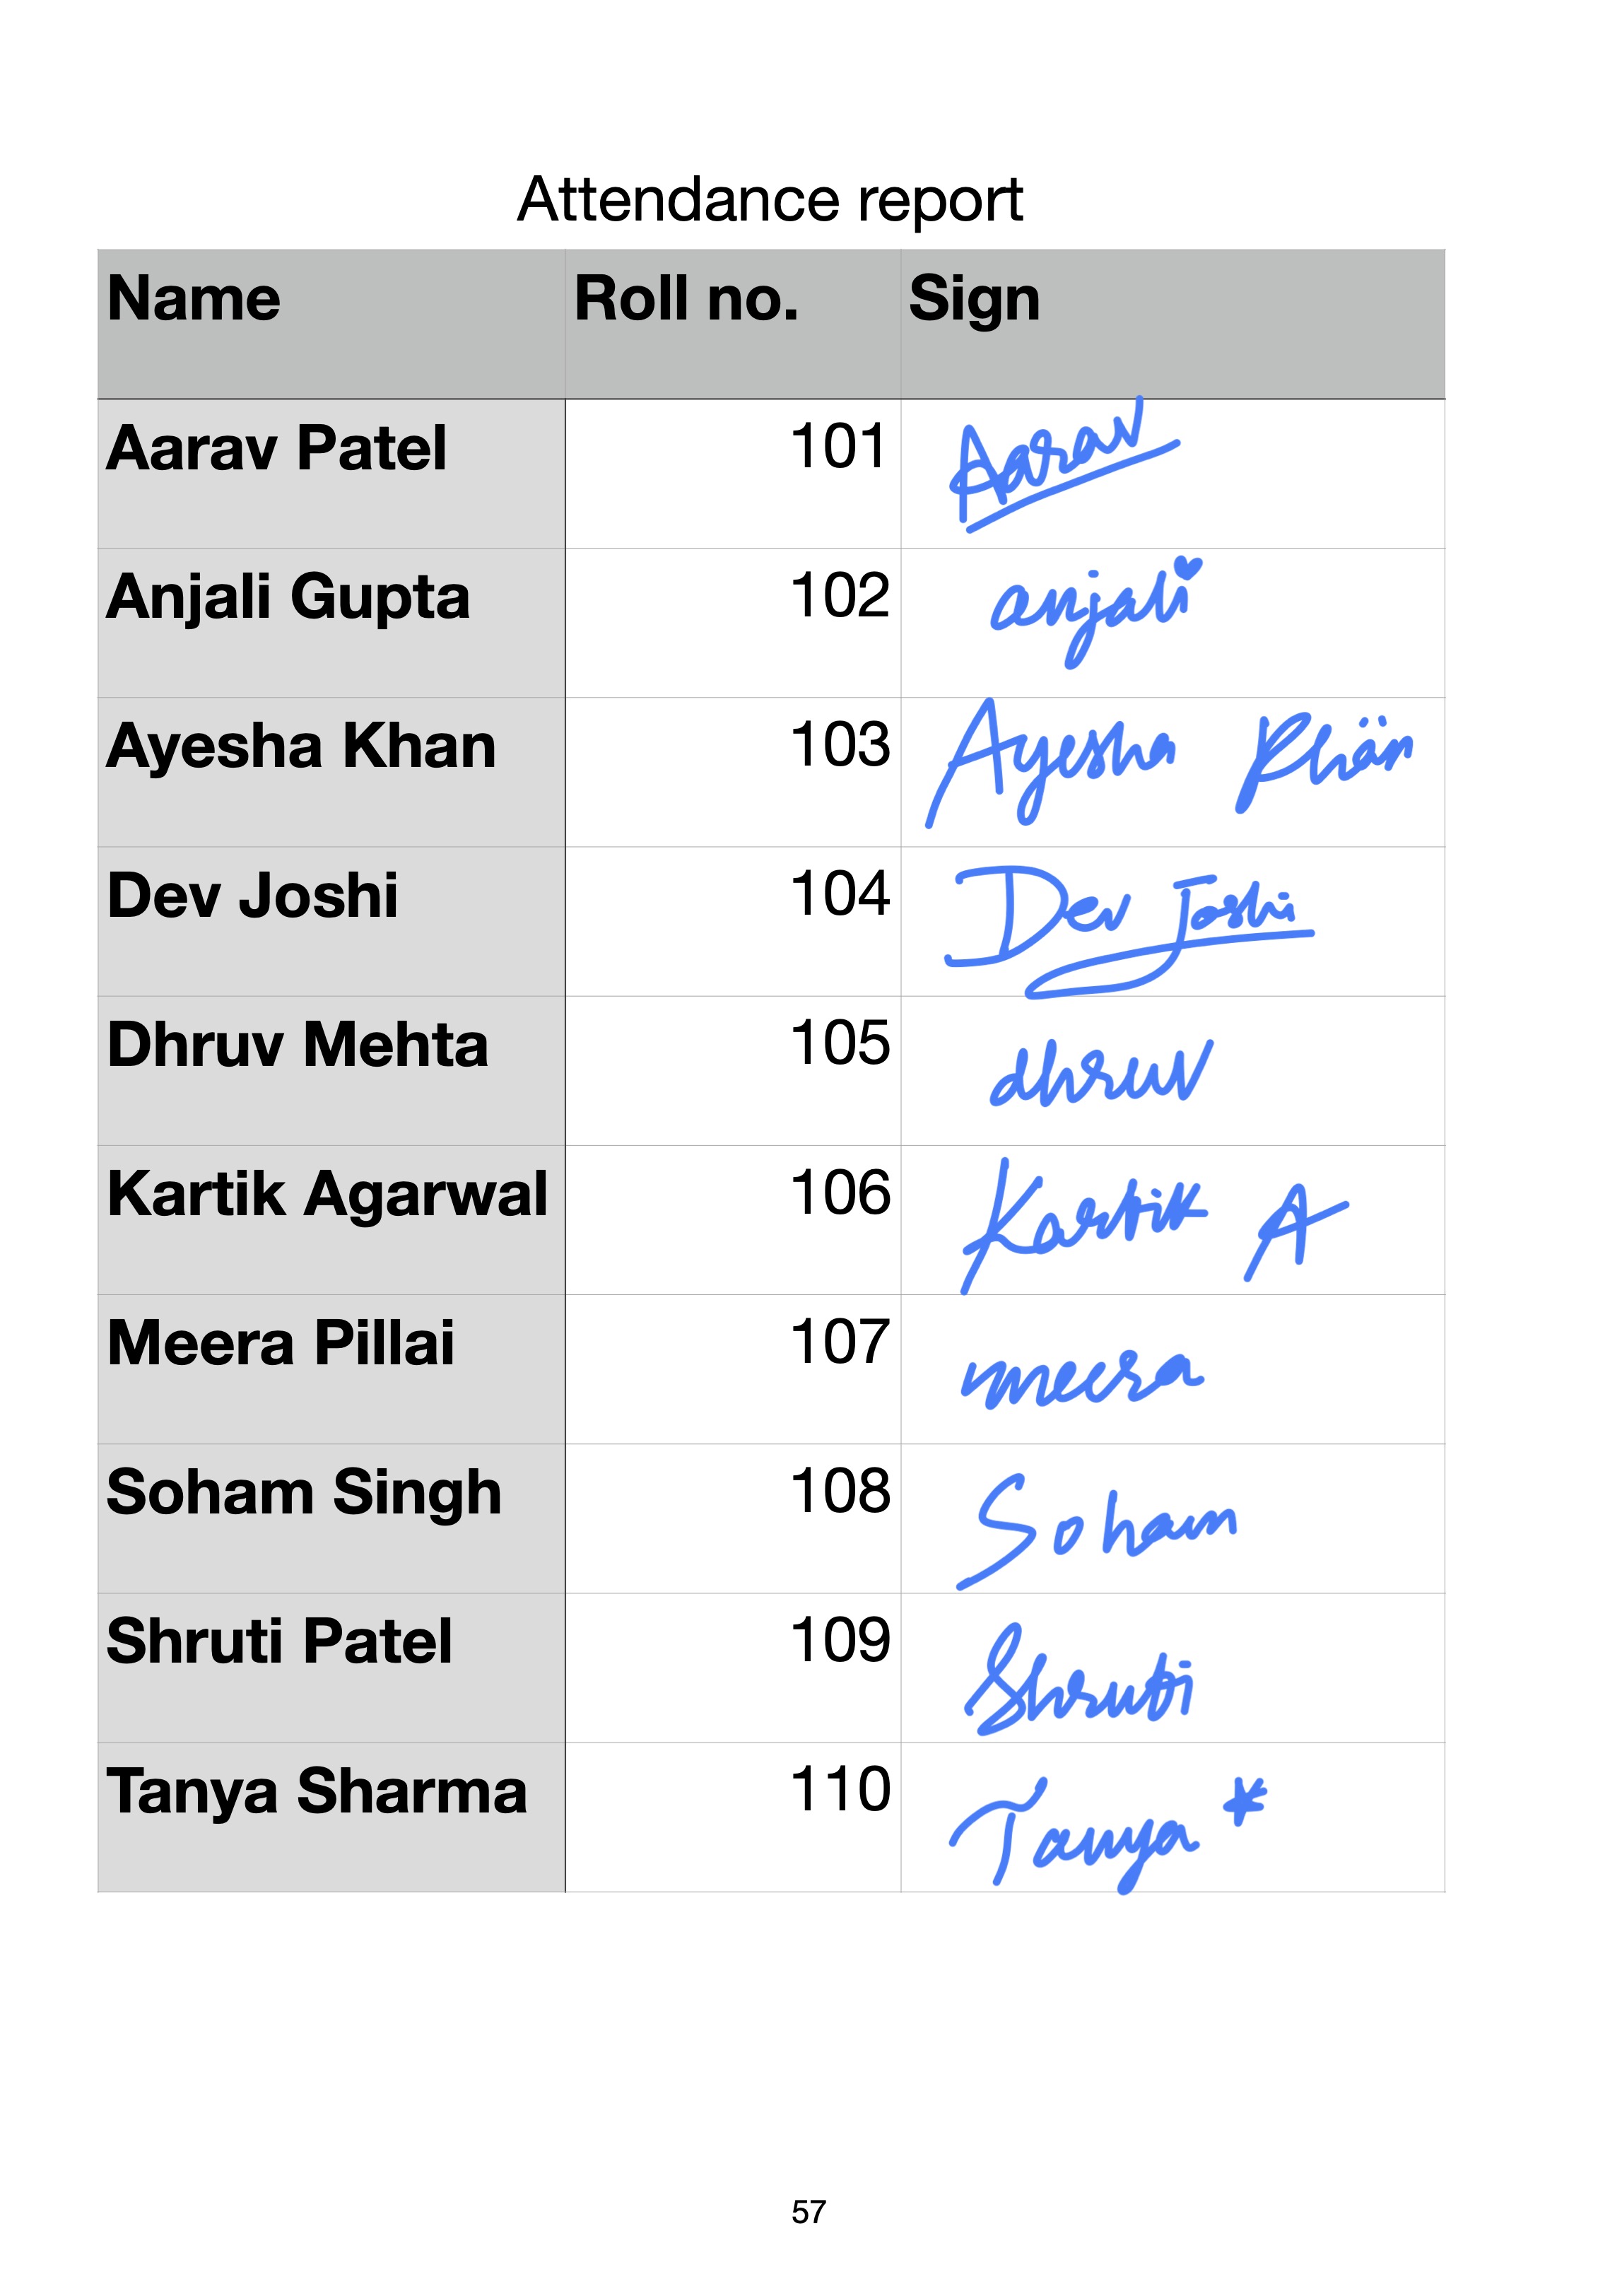 Attendance report
Name Roll no. Sign
Aarav Patel 101 Aarav
Anjali Gupta 102 anjali
Ayesha Khan 103 Ayesha Khan
Dev Joshi 104 Dev Joshi
Dhruv Mehta 105 dhruv
Kartik Agarwal 106 Kartik A
Meera Pillai 107 meera
Soham Singh 108 Soham
Shruti Patel 109 Shruti
Tanya Sharma 110 Tanya *
57